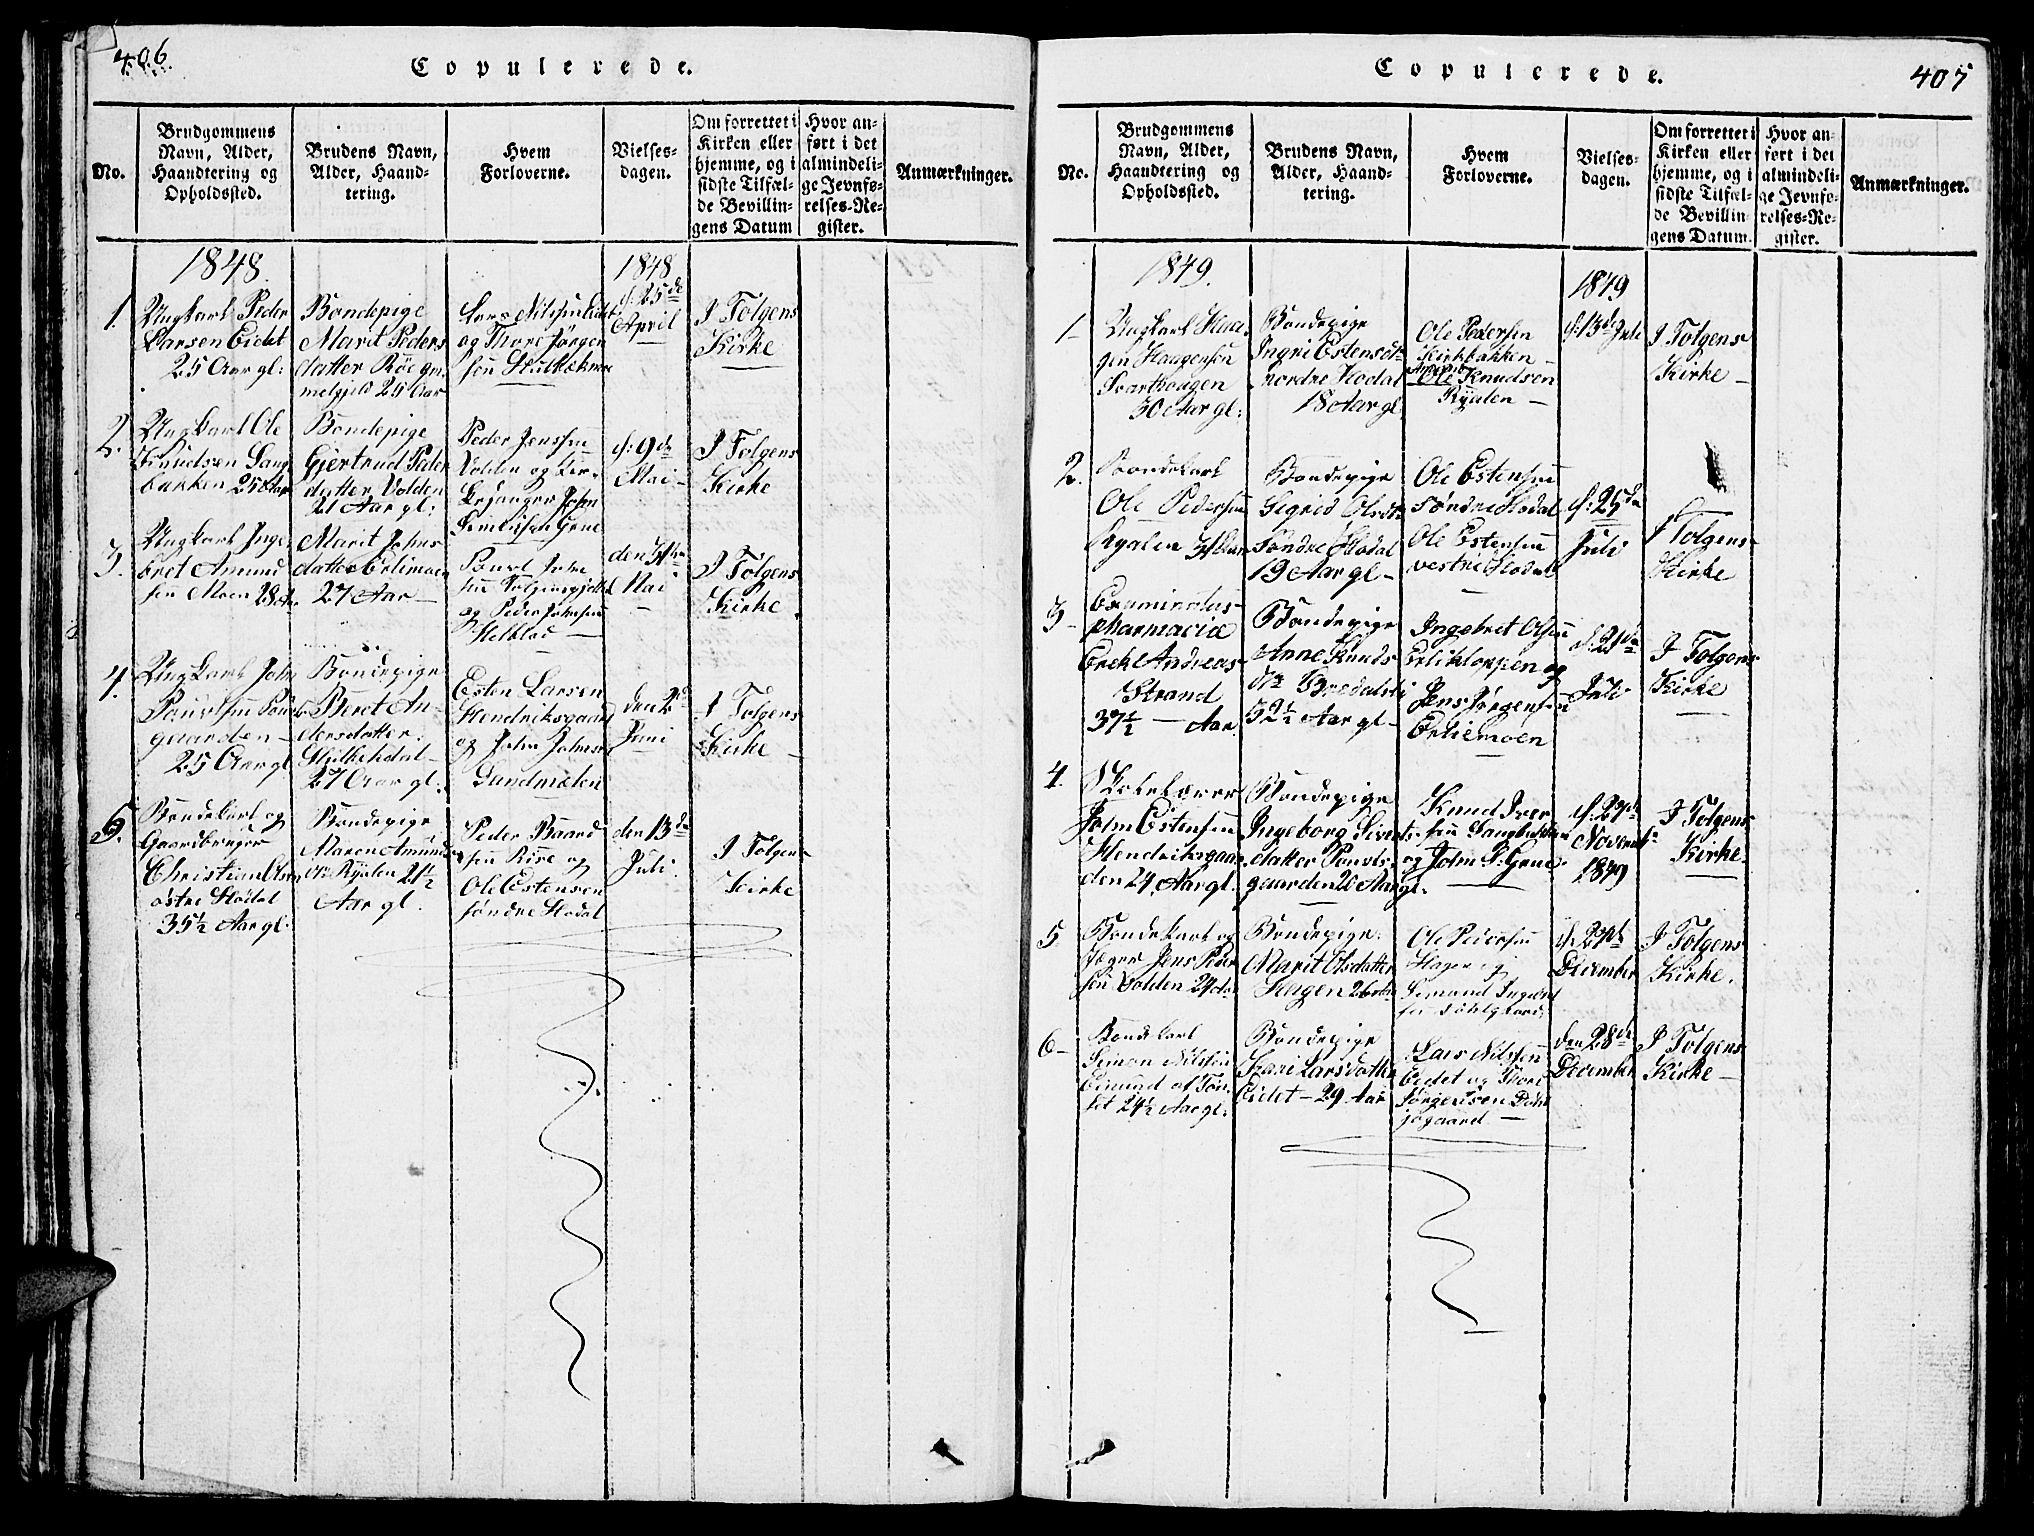 406
Copulerede.
No.
Brudgommens
Navn, Alder,
Haandtering og
Opholdssted.
Brudens Navn,
Alder, Haand-
tering.
Hvem
Forloverne.
Vielses-
dagen.
Om forrettet i
Kirken eller
hjemme, og i
sidste Tilfæl-
de Bevillin-
gens Datum
Hvor an-
ført i det
almindeli-
ge Jevnfø-
relses-Re-
gister.
Anmærkninger.
1848.
1848
1.
Ungkarl Peder
Larsen Eidet
25 Aar gl:
Bondepige
Marit Peders
datter Röe
25 Aar
Lars Nilssen Eidet
og Thore Jørgen
sen
d: 25de
April
I Tolgens
Kirke
2.
Ungkarl Ole
Knudsen Lang
bakken 25 Aar
Bondepige
Gjertrud Peder
datter Volden
21 Aar gl:
Peder Jenssen
Volden og Kir-
kesanger John
Simensen Grue
d: 9de
Mai
I Tolgens
Kirke
3.
Ungkarl Inge
bret Amund
sen Moen 28 Aar
Marit Johns
datter Erlimoen
27 Aar
Povel John
sen
og Peder Johnsen
den
Mai
I Tolgens
Kirke
4.
Ungkarl John
Povelsen Povels
gaarden
25 Aar gl
Bondepige
Beret An-
dersdatter
27 Aar gl.
Esten Larsen
Hendriksgaard
og John Johnsen
Sundmælen
den 2de
Juni
I Tolgens
Kirke
5.
Bondekarl og
Gaardbruger
Christian Olsen
østre Hodal
35½ Aar gl.
Bondepige
Maren Amunds
dtr Ryalen 21½
Aar gl.
Peder Baard
sen Rise og
Ole Estensen
søndre Hodal
den 13de
Juli
I Tolgens
Kirke
Copulerede.
407
No.
Brudgommens
Navn, Alder,
Haandtering og
Opholdssted.
Brudens Navn,
Alder, Haand-
tering.
Hvem
Forloverne.
Vielses-
dagen.
Om forrettet i
Kirken eller
hjemme, og i
sidste Tilfæl-
de Bevillin-
gens Datum.
Hvor an-
ført i det
almindeli-
ge Jevnfø-
relses-Re-
gister.
Anmærkninger.
1849.
1849
1
Ungkarl Haa
gen Haagensen
Svarthaugen
30 Aar gl:
Bondepige
Ingri Estensdtr
nordre Hodal
18 Aar gl
Ole Pedersen
Kirkbakken
Ole Knudsen
Ryalen
d: 13de Juli
I Tolgens
Kirke
2.
Bondekarl
Ole Pedersen
Ryalen
Bondepige
Sigrid Olsdtr
Søndre Hodal
19 Aar gl
Ole Estensen
Søndre Hodal
Ole Estensen
vestre Hodal
d: 25de
Juli
I Tolgens
Kirke
3
Examinatus
pharmaciæ
Erek Andreas
Strand
37½ Aar
Bondepige
Anne Knuds
dtr
32½ Aar gl
Ingebret Olsen
Erlikloppen og
Jens Jørgensen
Erliemoen
Juli
I Tolgens
Kirke
4.
Skolelærer
John Estensen
Hendriksgaar
den 24 Aar gl.
Bondepige
Ingeborg Siverts
datter Povels
gaarden 20 Aar gl.
Knud Iver
sen Langbakken
og John S. Grue
Novemb
1849
I Tolgens
Kirke
5
Bondekarl og
Jæger Jens Peder
sen Volden 24 Aar
Bondepige
Marit Olsdatter
Hagen 26 Aar
Ole Pedersen
Hagen og
Simund Ingebret
December
I Tolgens
Kirke.
6
Bondekarl
Simon Nilssen
Eimund af Tön
set 24½ Aar gl:
Bondepige
Kari Larsdatter
Eidet 29 Aar
Lars Nilssen
Eidet og Thore
Jørgensen
den 28de
December
I Tolgens
Kirke